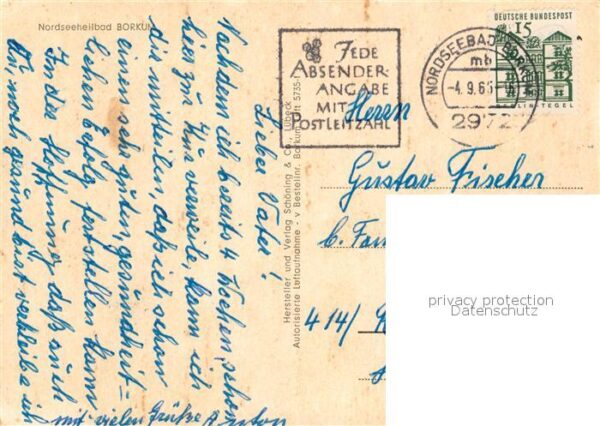 Nordseeheilbad BORKUM
Lieber Vater!
Nachdem ich bereits 4 Wochen schon
hier zur Kur verweile, kann ich
dir mitteilen, daß ich schon
einen sehr guten, gesundheit=
lichen Erfolg feststellen kann
In der Hoffnung, daß auch
Du, noch gesund bist verbleibe ich
mit vielen Grüße Anton
Hersteller und Verlag Schöning & Co., Lübeck
Autorisierte Luftaufnahme - v Bestellnr. Borkum Luft 5735-
JEDE
ABSENDER-
ANGABE
MIT
POSTLEITZAHL
NORDSEEBAD BORKUM
mb
-4.9.65-
2972
DEUTSCHE BUNDESPOST
15
BERLIN-TEGEL
Herrn
Gustav Fischer
b. Fam
414/
privacy protection
Datenschutz